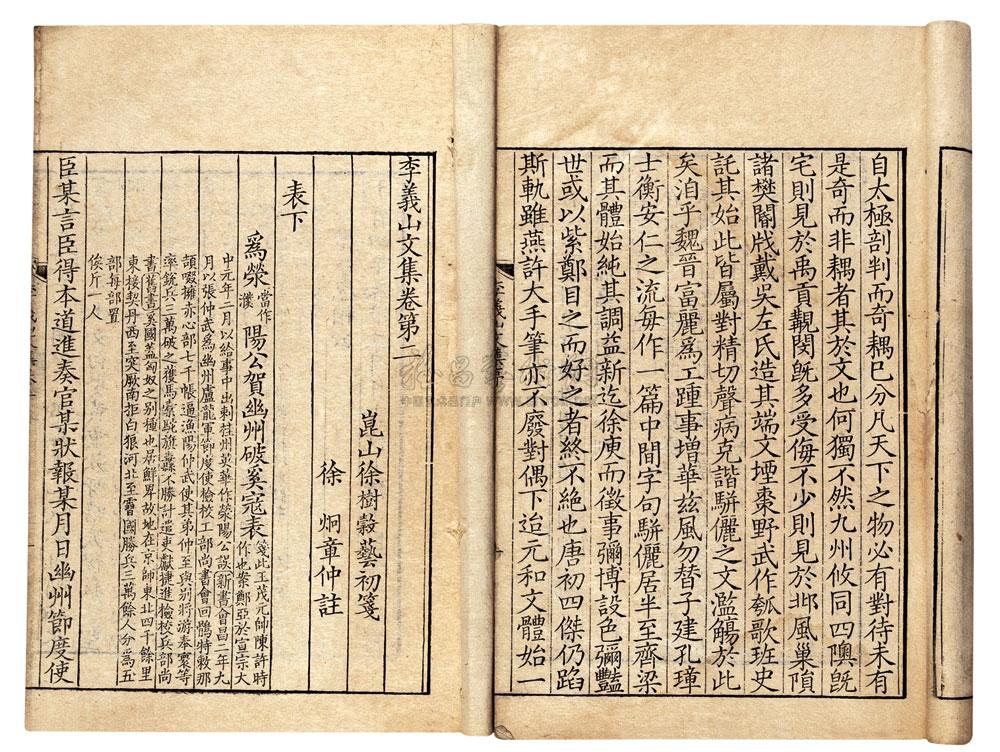 自太極剖判而奇耦已分凡天下之物必有對待未有
是奇而非耦者其於文也何獨不然九州攸同四隩旣
宅則見於禹貢覯閔旣多受侮不少則見於邶風巢隕
諸樊閽戕戴吳左氏造其端文堙棗野武作瓠歌班史
託其始此皆屬對精切聲病克諧駢儷之文濫觴於此
矣洎乎魏晉富麗爲工踵事增華茲風勿替子建孔璋
士衡安仁之流每作一篇中間字句駢儷居半至齊梁
而其體始純其調益新迄徐庾而徵事彌博設色彌豔
世或以紫鄭目之而好之者終不絶也唐初四傑仍蹈
斯軌雖燕許大手筆亦不廢對偶下迨元和文體始一
李義山文集卷第二
崑山徐樹穀藝初箋
徐炯章仲註
表下
爲滎當作濮陽公賀幽州破奚寇表箋此王茂元帥陳許時
作也案鄭亞於宣宗大
中元年二月以給事中出刺桂州英華作滎陽公誤新書會昌二年九
月以張仲武爲幽州盧龍軍節度使檢校工部尚書會回鶻特勒那
頡啜擁赤心部七千帳逼漁陽仲武使其弟仲至與別將游奉寰等
率銳兵三萬破之獲馬橐駝旗纛不勝計遣吏獻捷進檢校兵部尚
書舊書奚國蓋匈奴之別種也居鮮卑故地在京師東北四千餘里
東接契丹西至突厥南拒白狼河北至霫國勝兵三萬餘人分爲五
部每部置
俟斤一人
臣某言臣得本道進奏官某狀報某月日幽州節度使